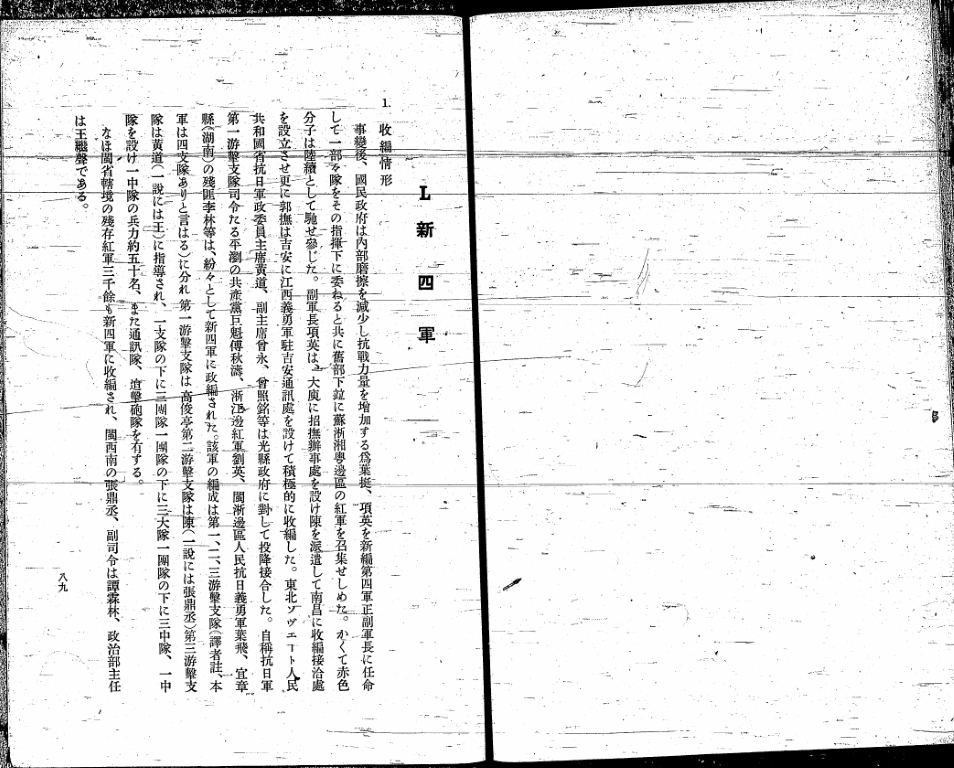 L 新四軍
1. 收編情形
事變後、國民政府は內部磨擦を減少し抗戰力量を增加する爲葉挺、項英を新編第四軍正副軍長に任命
して一部々隊をその指揮下に委ねると共に舊部下竝に蘇浙湘粤邊區の紅軍を召集せしめた。かくて赤色
分子は陸續として馳せ參じた。副軍長項英は、大庾に招撫辦事處を設け陳を派遣して南昌に收編接洽處
を設立させ更に郭撫は吉安に江西義勇軍駐吉安通訊處を設けて積極的に收編した。東北ソヴエート人民
共和國省抗日軍政委員主席黃道、副主席曾永、曾照銘等は光縣政府に對して投降接合した。自稱抗日軍
第一游擊支隊司令たる平瀏の共產黨巨魁傅秋濤、浙江邊紅軍劉英、閩浙邊區人民抗日義勇軍葉飛、宜章
縣(湖南)の殘匪李林等は、紛々として新四軍に改編された。該軍の編成は第一、二、三游擊支隊(譯者註、本
軍は四支隊ありと言はる)に分れ第一游擊支隊は高俊亭第二游擊支隊は陳(一說には張鼎丞)第三游擊支
隊は黃道(一說には王)に指導され、一支隊の下に三團隊一團隊の下に三大隊一團隊の下に三中隊、一中
隊を設け一中隊の兵力約五十名、また通訊隊、追擊砲隊を有する。
なほ閩省轄境の殘存紅軍三千餘も新四軍に收編され、閩西南の張鼎丞、副司令は譚霖林、政治部主任
は王繼聲である。
八九